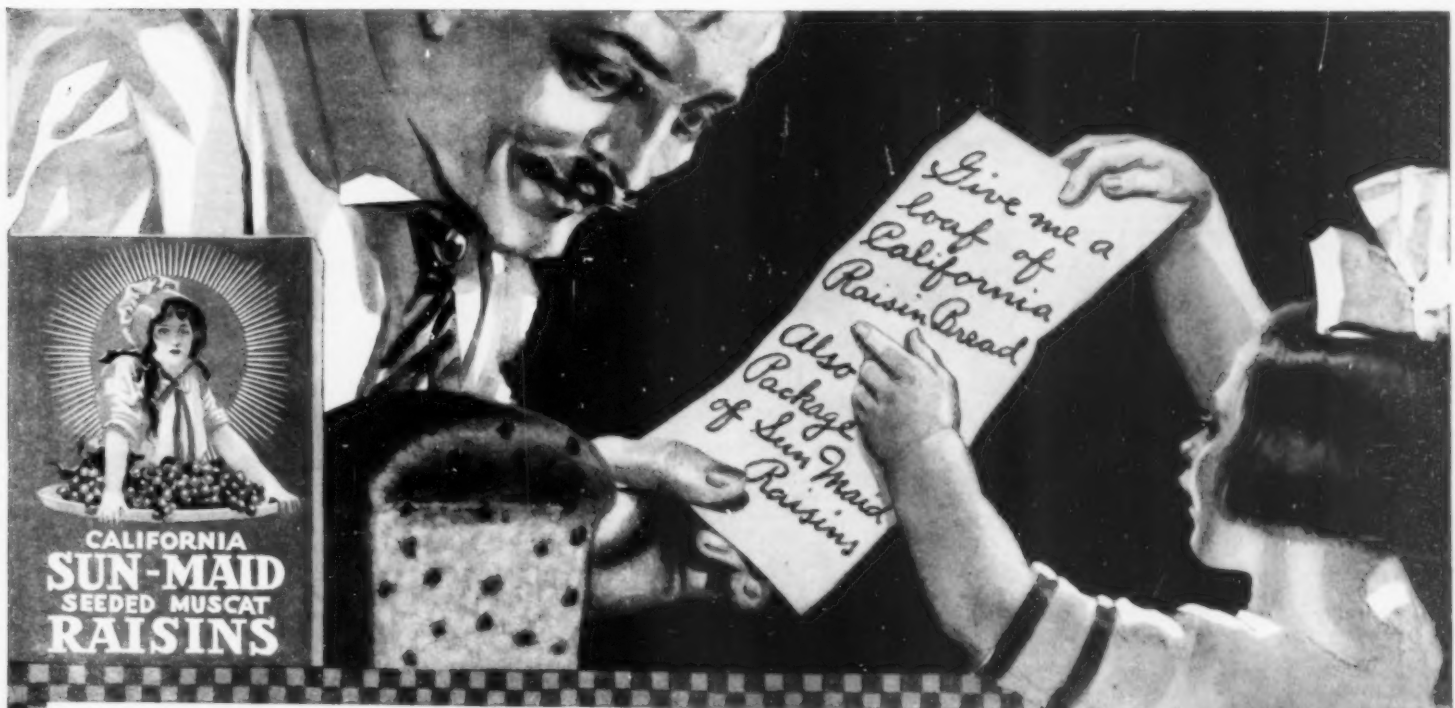 CALIFORNIA
SUN-MAID
SEEDED MUSCAT
RAISINS
Give me a
loaf of
California
Raisin Bread
Also
Package
of Sun Maid
Raisins